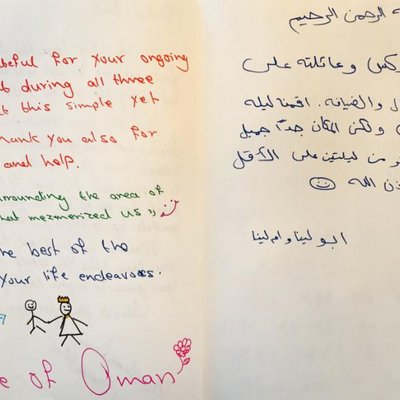 teful for your ongoing
t during all three
t this simple yet
hank you also for
and help.
rrounding the area of
hat mezmerized us
he best of the
your life endeavors.
e of Oman
ه الرحمن الرحيم
وعائلته على
ل والضيافة. اقمنا ليلة
ولكن المكان جداً جميل
من ليلتين على الأقل
ذن الله
ابو لينا وام لينا